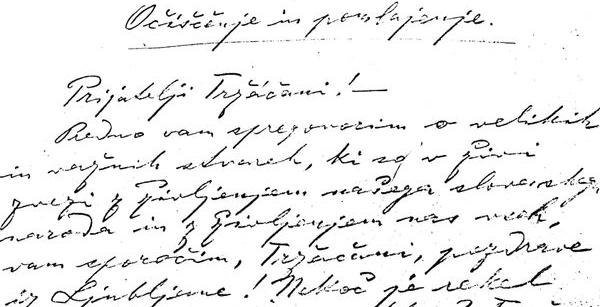 Očiščenje in pomlajenje.
Prijatelji Tržačani! —
Predno vam spregovorim o velikih
in važnih stvareh, ki so v živi
zvezi z življenjem našega slovenskega
naroda in z življenjem nas vseh,
vam sporočim, Tržačani, pozdrave
iz Ljubljane! Nekoč je rekel